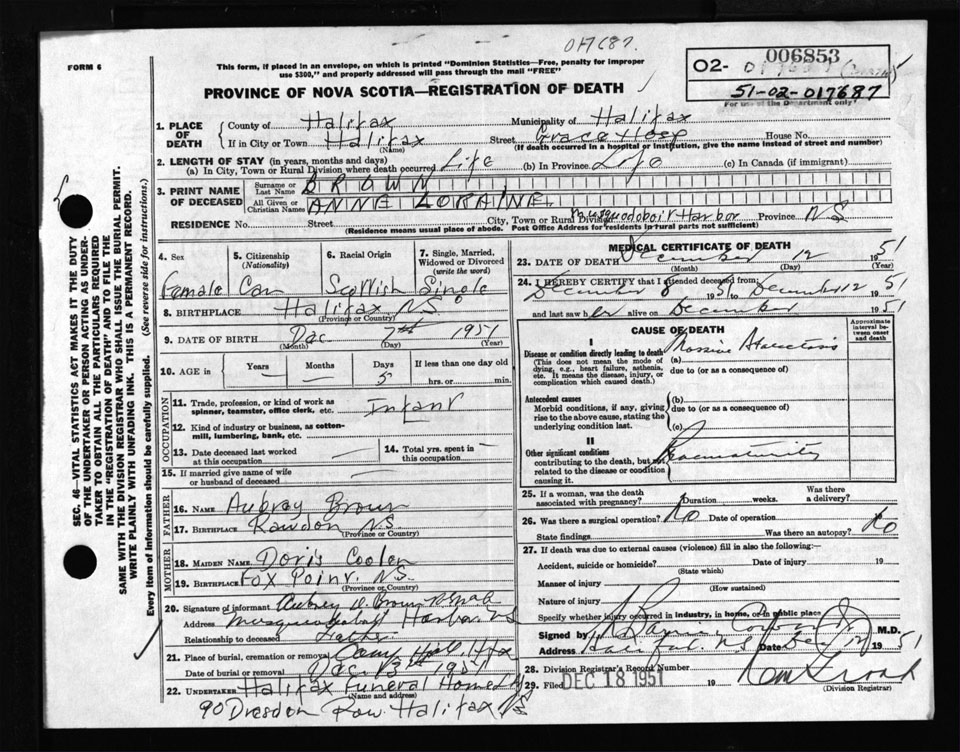 017687.
FORM 6
This form, if placed in an envelope, on which is printed "Dominion Statistics—Free, penalty for improper
use $300," and properly addressed will pass through the mail "FREE"
006853
O2-
51-02-017687
For use of the Department only
PROVINCE OF NOVA SCOTIA—REGISTRATION OF DEATH
1. PLACE OF DEATH
County of Halifax Municipality of Halifax
If in City or Town Halifax Street Grace Hosp House No.
(Name) (If death occurred in a hospital or institution, give the name instead of street and number)
2. LENGTH OF STAY (in years, months and days)
(a) In City, Town or Rural Division where death occurred Life (b) In Province Life (c) In Canada (if immigrant)
3. PRINT NAME OF DECEASED
Surname or Last Name BROWN
All Given or Christian Names ANNE LORAINE
RESIDENCE No. Street City, Town or Rural Division Musquodoboit Harbor Province NS
(Residence means usual place of abode. Post Office Address for residents in rural parts not sufficient)
4. Sex Female
5. Citizenship (Nationality) Can
6. Racial Origin Scottish
7. Single, Married, Widowed or Divorced (write the word) Single
8. BIRTHPLACE Halifax NS.
(Province or Country)
9. DATE OF BIRTH Dec. 7th 1951
(Month) (Day) (Year)
10. AGE in Years — Months — Days 5 If less than one day old hrs. or min.
OCCUPATION
11. Trade, profession, or kind of work as spinner, teamster, office clerk, etc. Infant
12. Kind of industry or business, as cotten-mill, lumbering, bank, etc.
13. Date deceased last worked at this occupation —
14. Total yrs. spent in this occupation —
15. If married give name of wife or husband of deceased
FATHER
16. Name Aubrey Brown
17. Birthplace Rawdon NS.
(Province or Country)
MOTHER
18. MAIDEN NAME Doris Coolen
19. BIRTHPLACE Fox Point. NS.
(Province or Country)
20. Signature of informant Aubrey D. Brown
Address Musquodoboit Harbor NS
Relationship to deceased Father
21. Place of burial, cremation or removal Camp Hill, Hfax
Date of burial or removal Dec 13th 1951
22. UNDERTAKER Halifax Funeral Home
(Name and address)
90 Dresden Row. Halifax NS
MEDICAL CERTIFICATE OF DEATH
23. DATE OF DEATH December 12 1951
(Month) (Day) (Year)
24. I HEREBY CERTIFY that I attended deceased from:
December 8 1951 to December 12 1951
and last saw her alive on December 1951
CAUSE OF DEATH
Approximate interval between onset and death
I
Disease or condition directly leading to death (a) Massive Atelectasis
(This does not mean the mode of dying, e.g., heart failure, asthenia, etc. It means the disease, injury, or complication which caused death.)
due to (or as a consequence of)
Antecedent causes
Morbid conditions, if any, giving rise to the above cause, stating the underlying condition last.
(b)
due to (or as a consequence of)
(c)
II
Other significant conditions
contributing to the death, but not related to the disease or condition causing it.
Prematurity
25. If a woman, was the death associated with pregnancy? Duration weeks. Was there a delivery?
26. Was there a surgical operation? No Date of operation
State findings Was there an autopsy? No
27. If death was due to external causes (violence) fill in also the following:—
Accident, suicide or homicide? Date of injury 19
(State which)
Manner of injury
(How sustained)
Nature of injury
Specify whether injury occurred in industry, in home, or in public place
Signed by M.D.
Address Halifax N.S Date Dec 12 1951
28. Division Registrar's Record Number
29. Filed DEC 18 1951 19
(Division Registrar)
SEC. 46—VITAL STATISTICS ACT MAKES IT THE DUTY
OF THE UNDERTAKER OR PERSON ACTING AS UNDER-
TAKER TO OBTAIN ALL THE PARTICULARS REQUIRED
IN THE "REGISTRATION OF DEATH" AND TO FILE THE
SAME WITH THE DIVISION REGISTRAR WHO SHALL ISSUE THE BURIAL PERMIT.
WRITE PLAINLY WITH UNFADING INK. THIS IS A PERMANENT RECORD.
Every item of information should be carefully supplied. (See reverse side for instructions.)